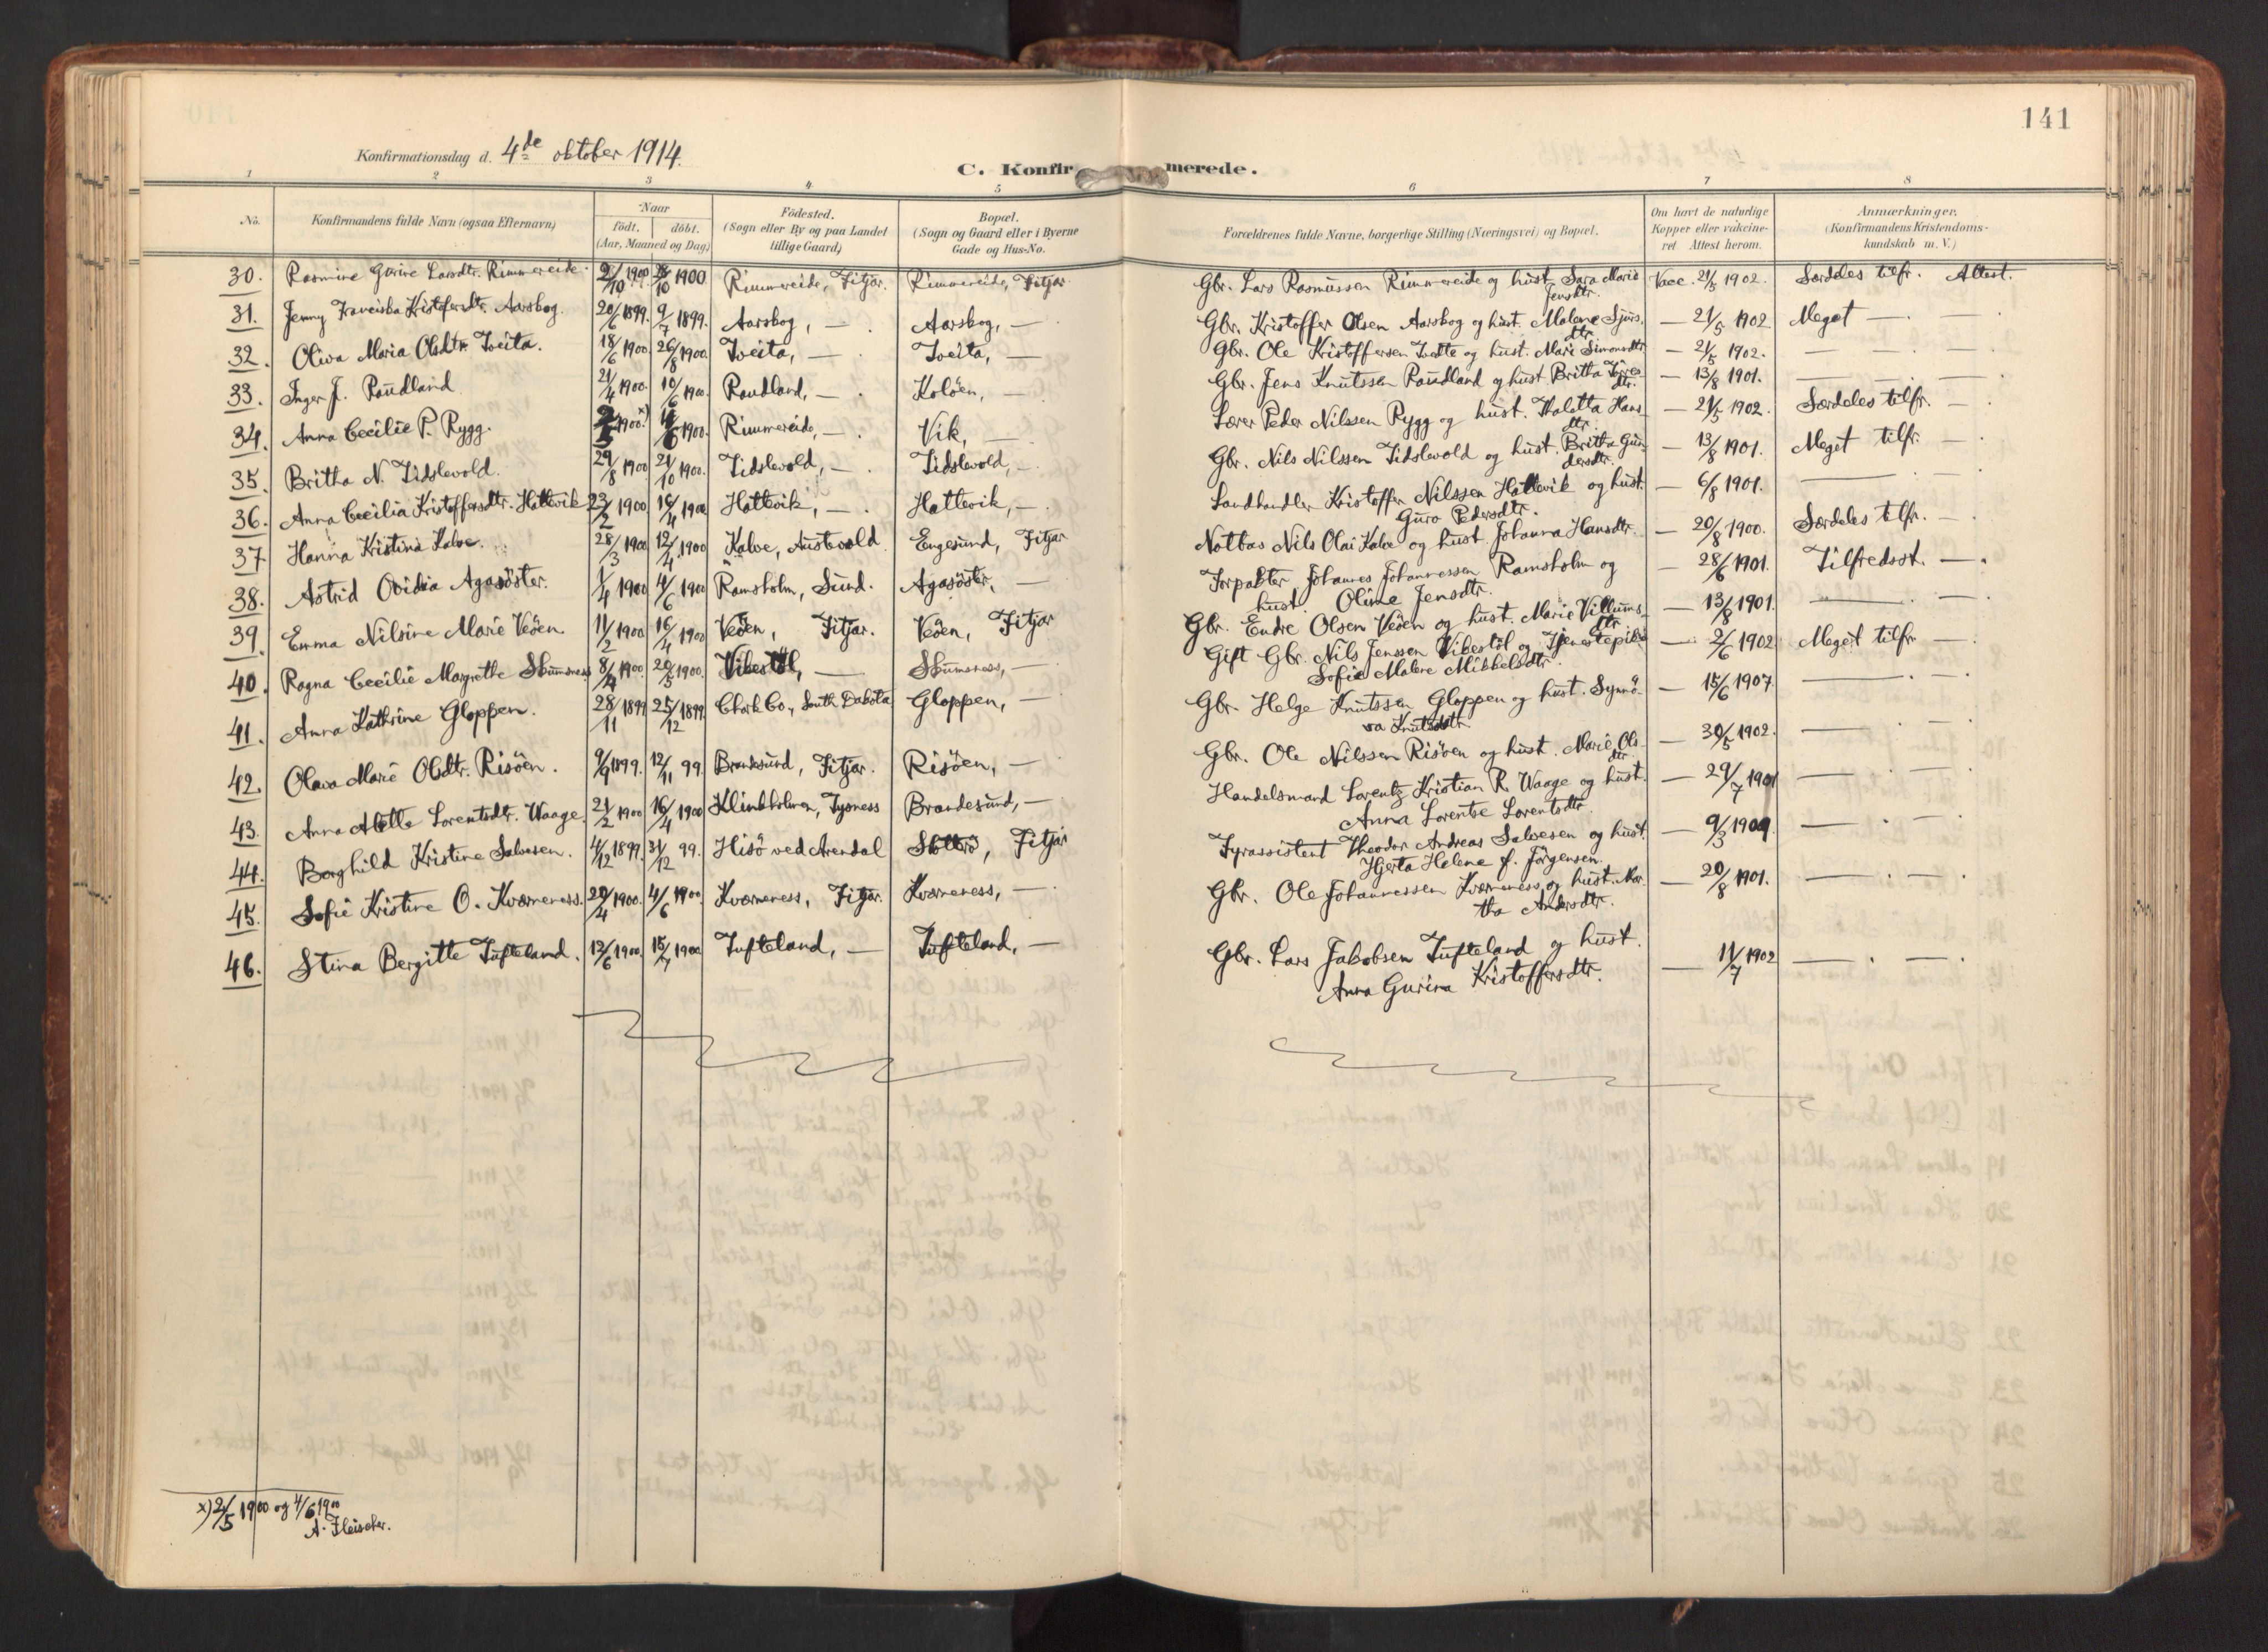 141
Konfirmationsdag d. 4de oktober 1914.
C. Konfirmerede.
1 2 3 4 5 6 7 8
No. Konfirmandens fulde Navn (ogsaa Efternavn) Naar født. døbt. (Aar, Maaned og Dag) Fødested. (Sogn eller By og paa Landet tillige Gaard) Bopæl. (Sogn og Gaard eller i Byerne Gade og Hus-No. Forældrenes fulde Navne, borgerlige Stilling (Næringsvei) og Bopæl. Om havt de naturlige Kopper eller vakcineret. Attest herom. Anmærkninger. (Konfirmandens Kristendomskundskab m. V.)
30. Rasmine Gurine Larsdtr. Rimmereide. 2/10 1900 28/10 1900 Rimmereide, Fitjar. Rimmereide, Fitjar Gbr. Lars Rasmussen Rimmereide og hust. Sara Marie Jensdtr. Vacc. 21/5 1902. Særdeles tilfr. Attest.
31. Jenny Franciska Kristofersdtr. Aarskog. 20/6 1899. 9/7 1899. Aarskog, — . Aarskog, — Gbr. Kristoffer Olsen Aarskog og hust. Malene Sjursdtr. — 21/5 1902 Meget — . —
32. Oliva Maria Olsdtr. Tveita. 18/6 1900. 26/8 1900. Tveita, — . Tveita, — Gbr. Ole Kristoffersen Tvedte og hust. Mari Simonsdtr — 21/5 1902. — . —
33. Inger J. Raudland 21/4 1900. 10/6 1900. Raudland, — . Koløen, — Gbr. Jens Knutssen Raudland og hust Britta Torresdtr. — 13/8 1901. — . —
34. Anna Cecilie P. Rygg. 2/5 1900. x) 4/6 1900. Rimmereide, — . Vik, — Lærer Peder Nilssen Rygg og hust. Thaletta Hansdtr. — 21/5 1902. Særdeles tilfr. —
35. Britha N. Tidslevold. 29/8 1900 21/10 1900. Tidslevold, — . Tidslevold, — Gbr. Nils Nilssen Tidslevold og hust. Britha Gundersdtr. — 13/8 1901. Meget tilfr. —
36. Anna Cecilia Kristoffersdtr. Hattevik 23/2 1900 16/4 1900 Hattevik, — . Hattevik, — Landhandler Kristoffer Nilssen Hattevik og hust. Guro Pedersdtr. — 6/8 1901. — . —
37. Hanna Kristina Kalve. 28/3 1900 12/4 1900 Kalve, Austevold Engesund, Fitjar Notbas Nils Olai Kalve og hust. Johanna Hansdtr. — 20/8 1900. Særdeles tilfr. —
38. Astrid Ovidia Agasøster. 1/4 1900 4/6 1900 Ramsholm, Sund. Agasøster, — Forpakter Johannes Johannessen Ramsholm og hust. Oline Jensdtr. — 28/6 1901. Tilfredsst. — .
39. Emma Nilsine Marie Veøen. 11/2 1900 16/4 1900 Veøen, Fitjar. Veøen, Fitjar Gbr. Endre Olsen Veøen og hust. Marie Villumsdtr. — 13/8 1901. — . —
40. Ragna Cecilie Margrethe Skumsnes 8/4 1900. 20/5 1900. Vikestøl, — Skumsness, — Gift Gbr. Nils Jenssen Vikestøl og Tjenestepike Sofie Malene Mikkelsdtr. — 2/6 1902 Meget tilfr —
41. Anna Kathrine Gloppen. 28/11 1899 25/12 1899. Clark Co., South Dakota Gloppen, — Gbr. Helge Knutssen Gloppen og hust. Synnøva Knutsdtr — 15/6 1907. — . —
42. Olava Marie Olsdtr. Risøen. 9/9 1899. 12/11 99. Brandesund, Fitjar. Risøen, — Gbr. Ole Nilssen Risøen og hust. Marie Olsdtr. — 30/5 1902. — . —
43. Anna Alette Lorentsdtr. Waage. 21/2 1900 16/4 1900 Klinkholmen, Tysness Brandesund, — Handelsmand Lorentz Kristian R. Waage og hust. Anna Lorentse Lorentsdtr. — 29/7 1901 — . —
44. Borghild Kristine Salvesen. 4/12 1899. 31/12 99. Hisø ved Arendal Slotterø, Fitjar Fyrassistent Theodor Andreas Salvesen og hust. Hjerta Helene f. Jørgensen. — 9/3 1909. — . —
45. Sofie Kristine O. Kværneness. 29/4 1900. 4/6 1900. Kværneness, Fitjar. Kværneness, — Gbr. Ole Johannessen Kværneness og hust. Martha Andersdtr. — 20/8 1901. — . — .
46. Stina Bergitte Tufteland. 12/6 1900. 15/7 1900 Tufteland, — Tufteland, — Gbr. Lars Jakobsen Tufteland og hust. Anna Gurina Kristoffersdtr. — 11/7 1902 — . — .
x) 2/5 1900 og 4/6 1900
A. Fleischer.